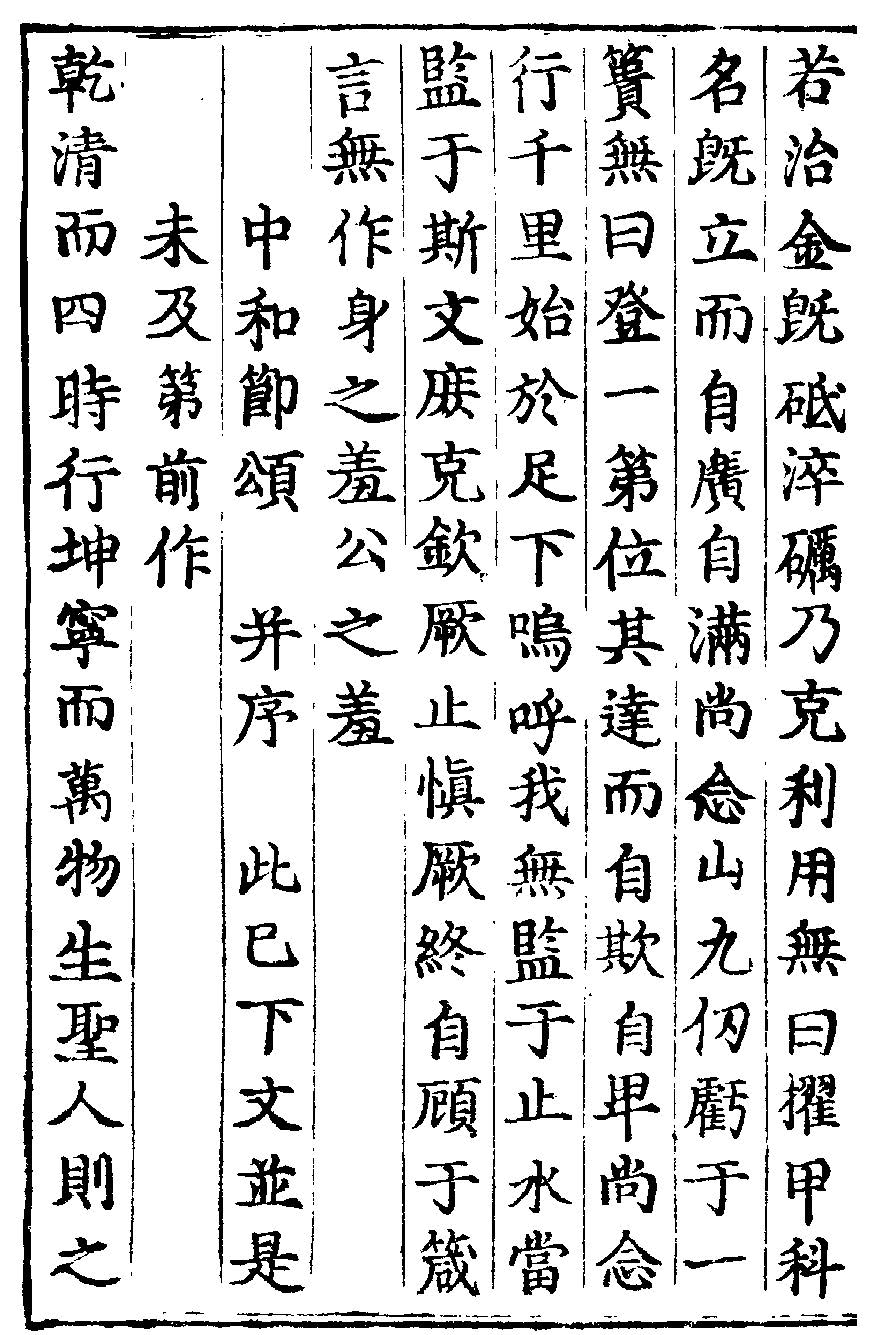 若治金既砥淬礪乃克利用無曰擢甲科
名既立而自廣自滿尚念山九仞虧于一
簣無曰登一第位其達而自欺自卑尚念
行千里始於足下嗚呼我無監于止水當
監于斯文庻克欽厥止慎厥終自顧于箴
言無作身之羞公之羞
中和節頌　并序　此巳下文並是
未及第前作
乾清而四時行坤寧而萬物生聖人則之